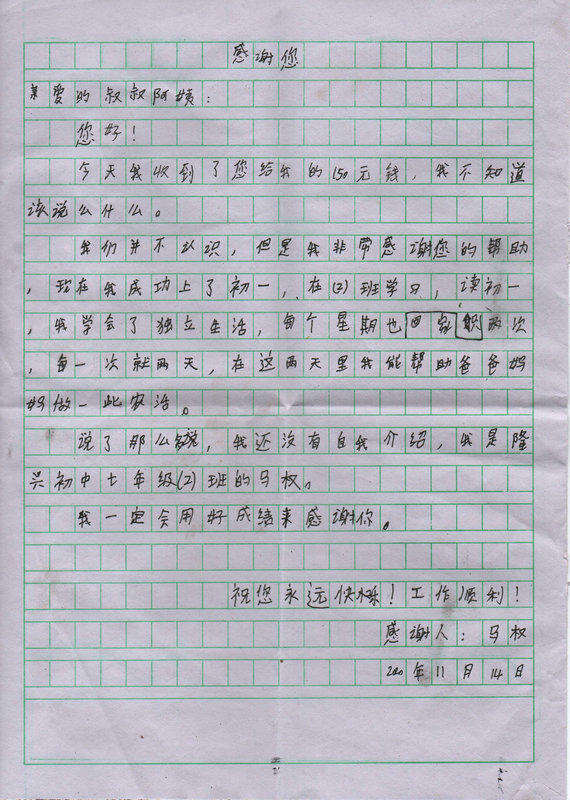 感谢您
亲爱的叔叔阿姨：
您好！
今天我收到了您给我的150元钱，我不知道
该说么什么。
我们并不认识，但是我非常感谢您的帮助
，现在我成功上了初一，在(2)班学习，读初一
，我学会了独立生活，每个星期也回家两次
，每一次就两天，在这两天里我能帮助爸爸妈
妈做一些农活。
说了那么多，我还没有自我介绍，我是隆
兴初中七年级(2)班的马权。
我一定会用好成结来感谢你。
祝您永远快乐！工作顺利！
感谢人：马权
年11月14日